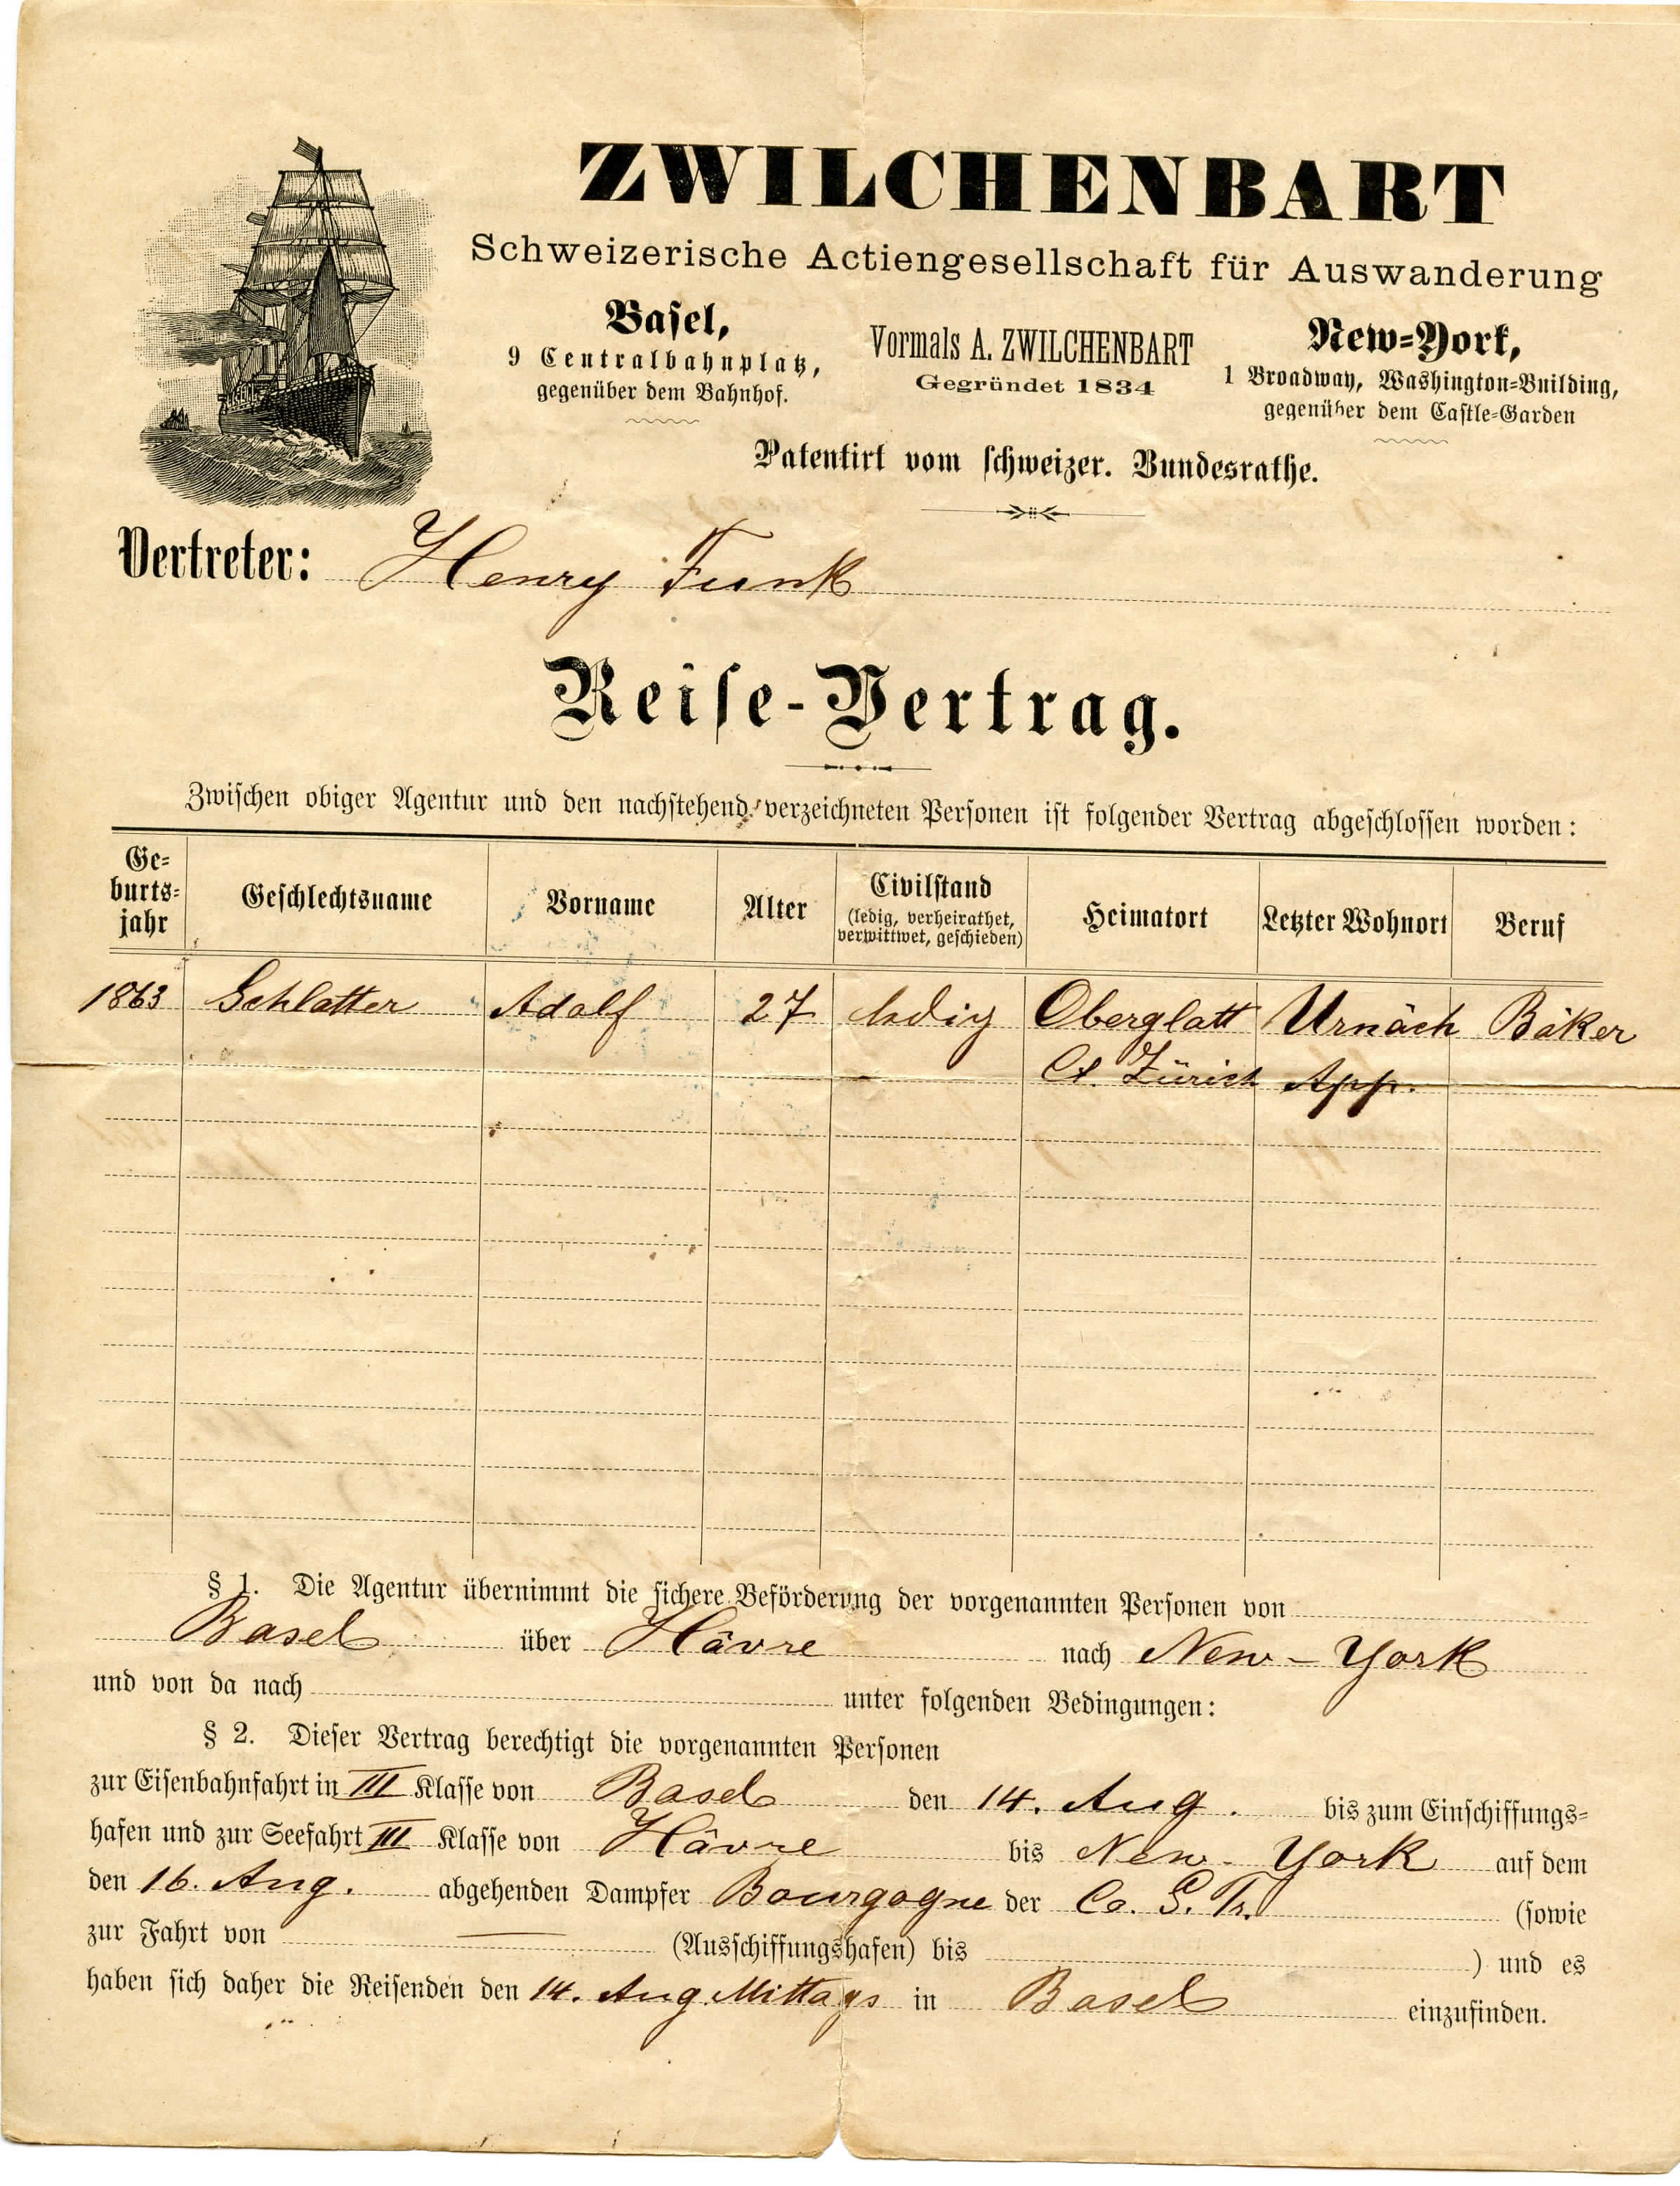 ZWILCHENBART
Schweizerische Actiengesellschaft für Auswanderung
Basel,
9 Centralbahnplatz,
gegenüber dem Bahnhof.
Vormals A. ZWILCHENBART
Gegründet 1834
New-York,
1 Broadway, Washington-Building,
gegenüber dem Castle-Garden
Patentirt vom schweizer. Bundesrathe.
Vertreter: Henry Funk
Reise-Vertrag.
Zwischen obiger Agentur und den nachstehend verzeichneten Personen ist folgender Vertrag abgeschlossen worden:
Ge-
burts-
jahr
Geschlechtsname
Vorname
Alter
Civilstand
(ledig, verheirathet,
verwittwet, geschieden)
Heimatort
Letzter Wohnort
Beruf
1863 Schlatter Adolf 27 ledig Oberglatt Urnäch Bäker
Ct. Zürich App.
§ 1. Die Agentur übernimmt die sichere Beförderung der vorgenannten Personen von
Basel über Hâvre nach New-York
und von da nach unter folgenden Bedingungen:
§ 2. Dieser Vertrag berechtigt die vorgenannten Personen
zur Eisenbahnfahrt in III Klasse von Basel den 14. Aug. bis zum Einschiffungs-
hafen und zur Seefahrt III Klasse von Hâvre bis New-York auf dem
den 16. Aug. abgehenden Dampfer Bourgogne der Co. G. Tr. (sowie
zur Fahrt von (Ausschiffungshafen) bis ) und es
haben sich daher die Reisenden den 14. Aug. Mittags in Basel einzufinden.